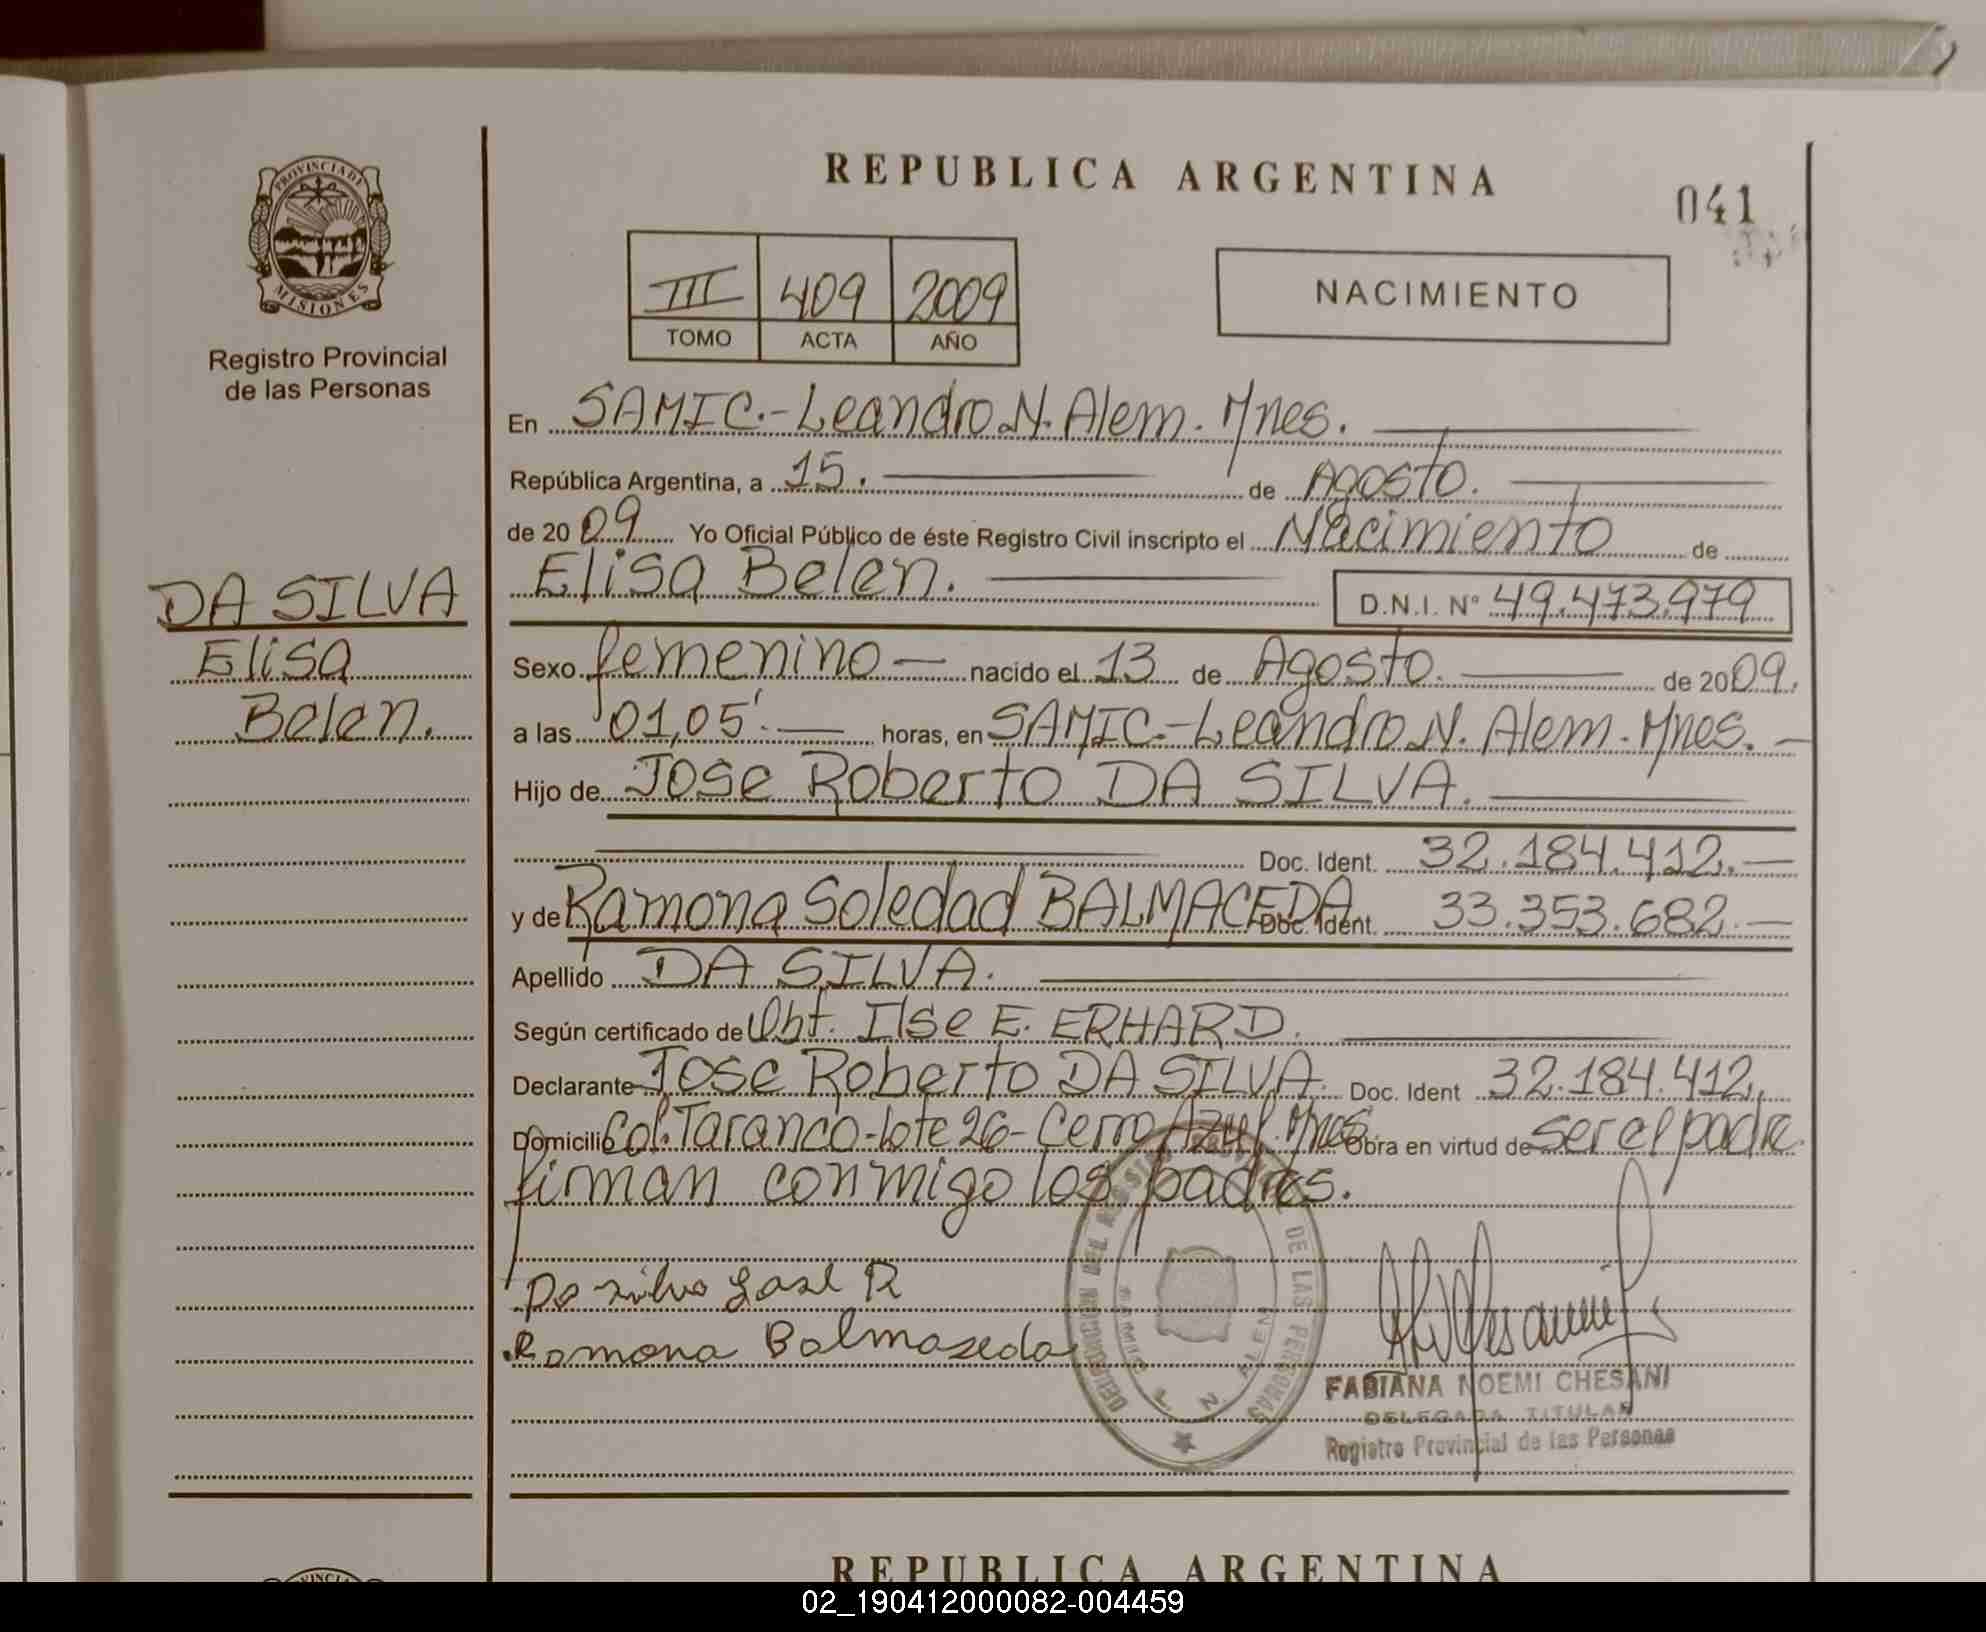 PROVINCIA DE
MISIONES
Registro Provincial
de las Personas
DA SILVA
Elisa
Belen.
REPUBLICA ARGENTINA
041
III 409 2009
TOMO ACTA AÑO
NACIMIENTO
En SAMIC.- Leandro N. Alem. Mnes.
República Argentina, a 15. de Agosto.
de 2009 Yo Oficial Público de éste Registro Civil inscripto el Nacimiento de
Elisa Belen. D.N.I. Nº 49.473.979
Sexo femenino nacido el 13 de Agosto. de 2009.
a las 01,05'. horas, en SAMIC.- Leandro N. Alem. Mnes.
Hijo de Jose Roberto DA SILVA.
Doc. Ident. 32.184.412.
y de Ramona Soledad BALMACEDA Doc. Ident. 33.353.682.
Apellido DA SILVA.
Según certificado de Obt. Ilse E. ERHARD.
Declarante Jose Roberto DA SILVA. Doc. Ident 32.184.412,
Domicilio Col. Taranco-lote 26- Cerro Azul. Mnes. Obra en virtud de ser el padre.
firman conmigo los padres.
Da silva José R
Ramona Balmaseda
DE LAS PERSONAS
L N ALEM
FABIANA NOEMI CHESANI
DELEGADA TITULAR
Registro Provincial de las Personas
REPUBLICA ARGENTINA
02_190412000082-004459